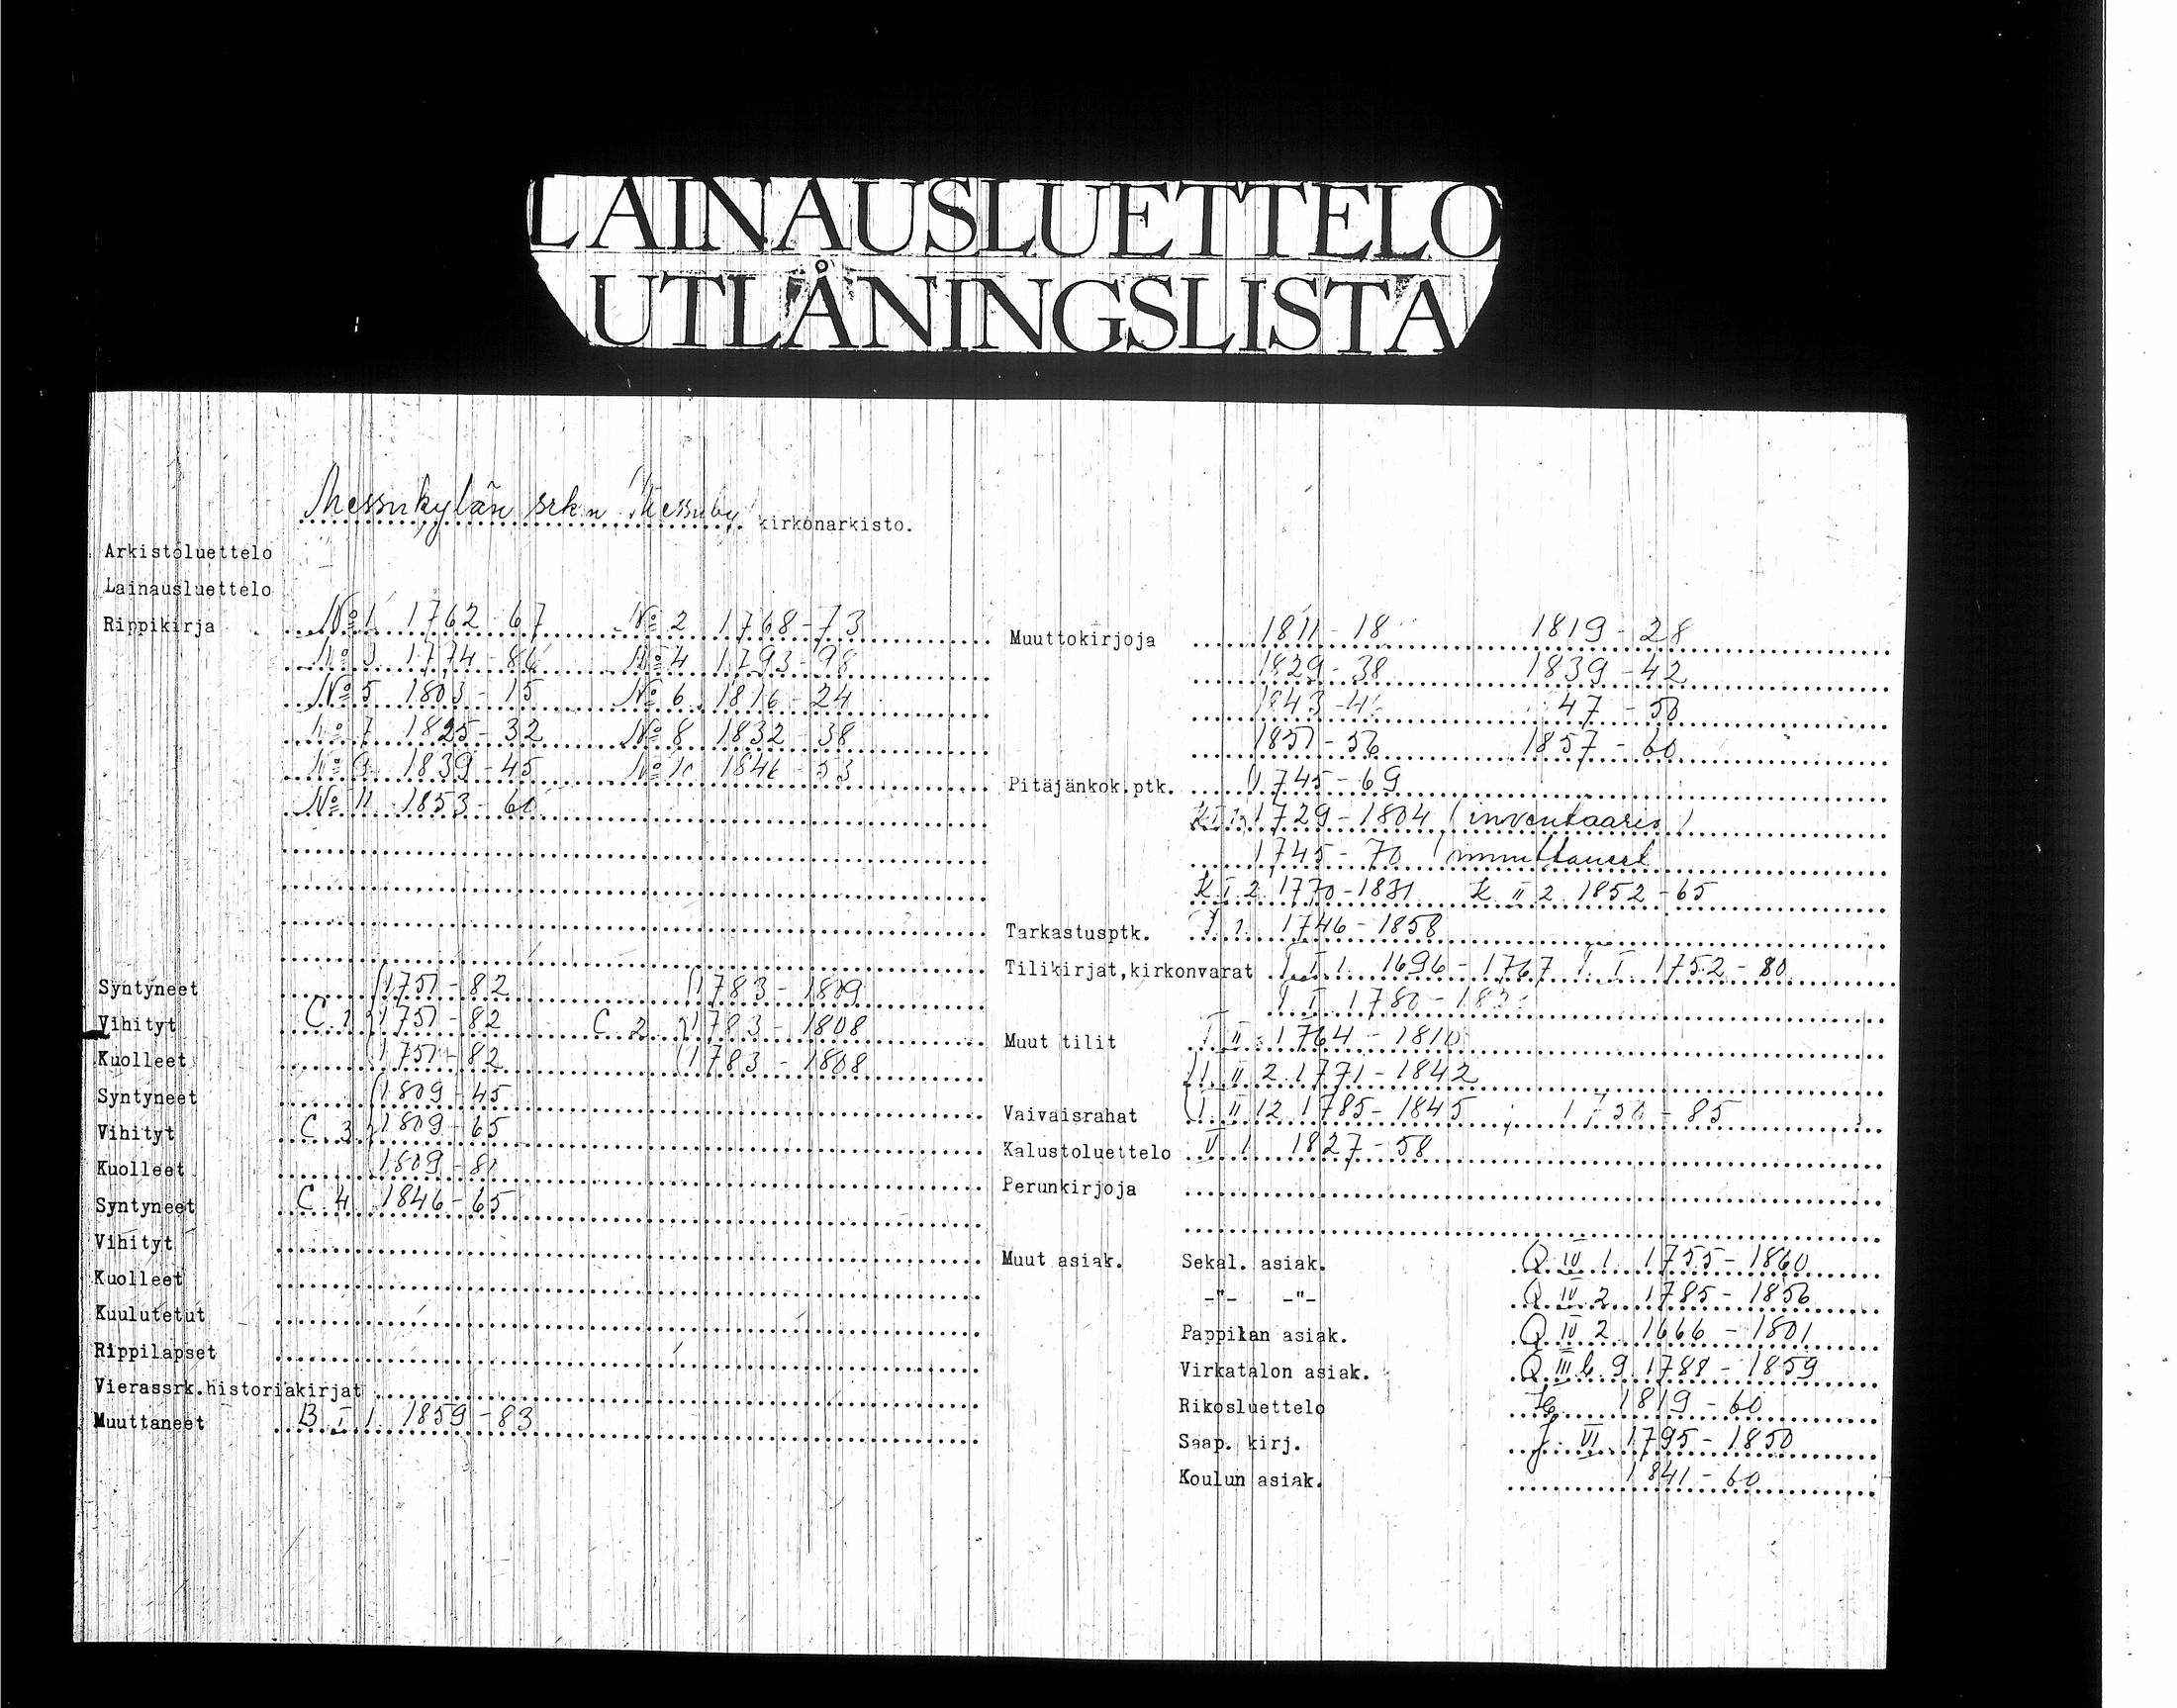 LAINAUSLUETTELO
UTLÅNINGSLISTA
Messukylän srk.n Messuby kirkonarkisto.
Arkistoluettelo
Lainausluettelo
Rippikirja No 1 1762-67 No 2 1768-73
No 3 1774-86 No 4 1793-98
No 5 1803-15 No 6 1816-24
No 7 1825-32 No 8 1832-38
No 9 1839-45 No 10 1846-53
No 11 1853-60
Syntyneet 1751-82 1783-1809
Vihityt C.1 1751-82 C.2 1783-1808
Kuolleet 1751-82 1783-1808
Syntyneet 1809-45
Vihityt C.3 1809-65
Kuolleet 1809-
Syntyneet C.4 1846-65
Vihityt
Kuolleet
Kuulutetut
Rippilapset
Vierassrk.historiakirjat
Muuttaneet B I 1 1859-83
Muuttokirjoja 1811-18 1819-28
1829-38 1839-42
1843-46 47-50
1851-56 1857-60
Pitäjänkok.ptk. 1745-69
1729-1804 (inventaario)
1745-70
K I 2 1770-1831 K II 2 1852-65
Tarkastusptk. 1746-1858
Tilikirjat,kirkonvarat I I 1 1696-1767 I I 1752-80
I I 1780-
Muut tilit 1764-1810
I II 2 1771-1842
Vaivaisrahat I II 12 1785-1845 -85
Kalustoluettelo 1 1827-58
Perunkirjoja
Muut asiak. Sekal. asiak. Q IV 1 1755-1860
-"- -"- Q IV 2 1785-1856
Pappilan asiak. Q IV 2 1666-1801
Virkatalon asiak. Q III b 9 1788-1859
Rikosluettelo 1819-60
Saap. kirj. J VI 1795-1850
Koulun asiak. 1841-60